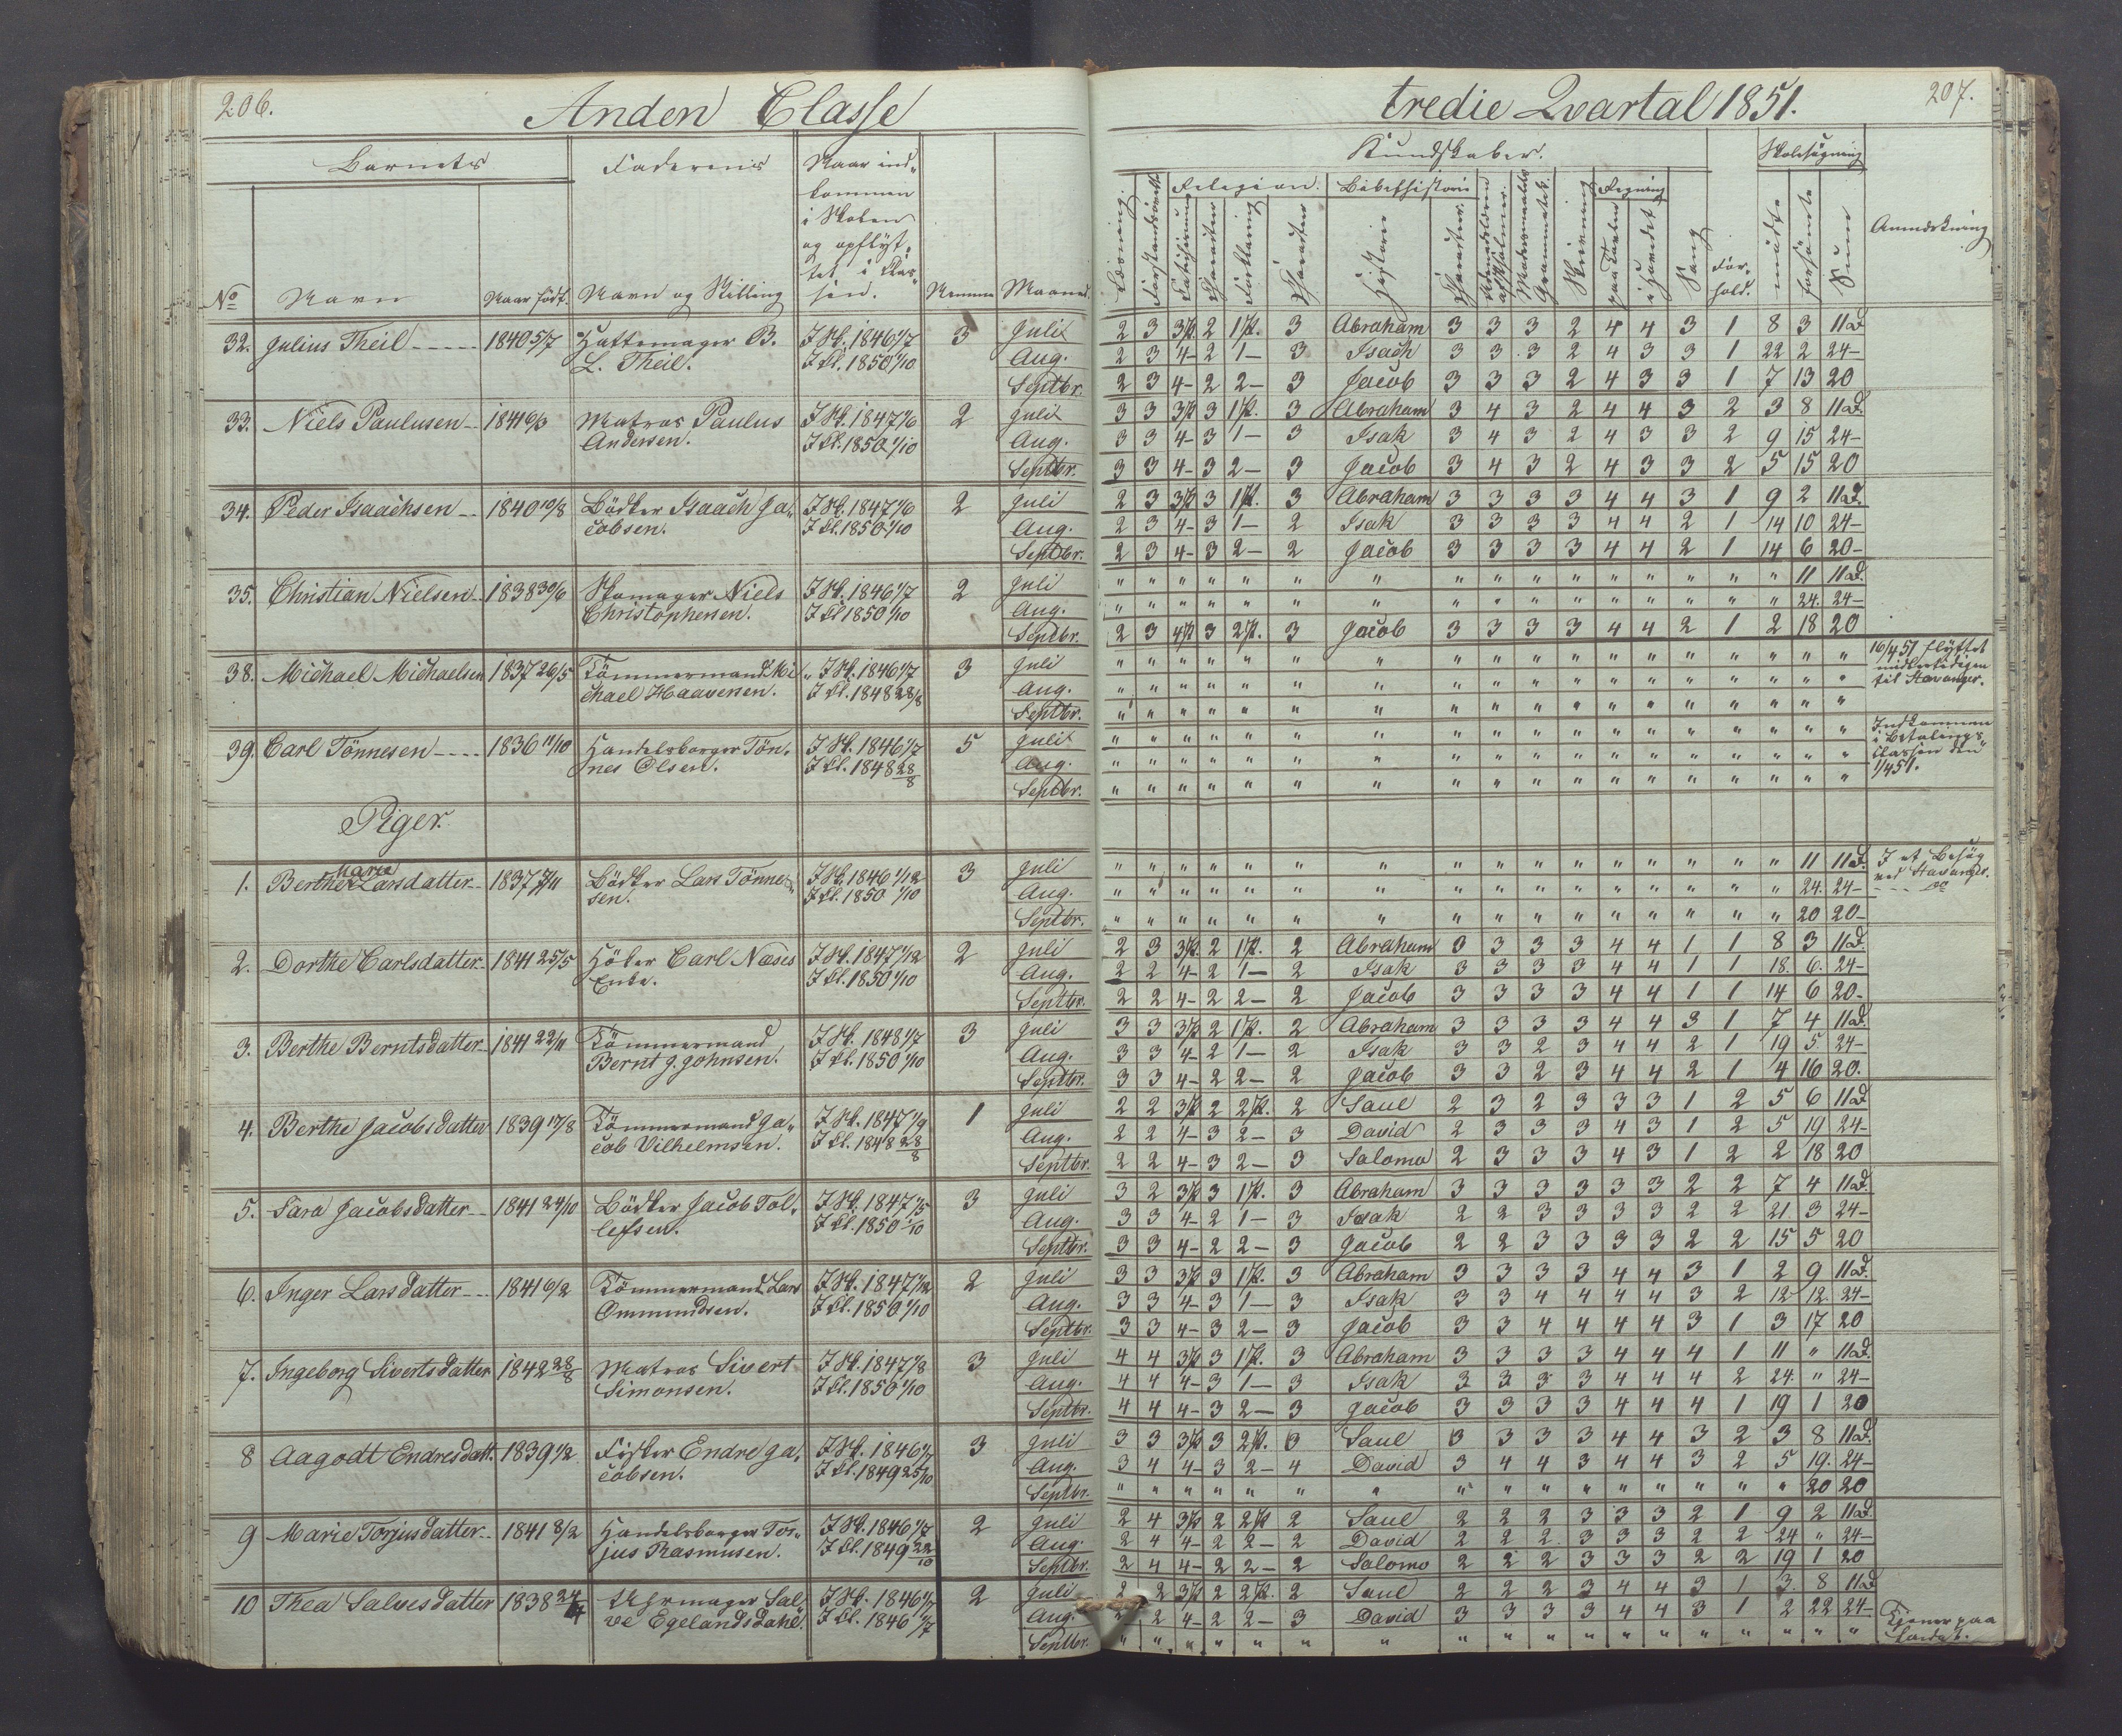 206.
Anden Classe
tredie Qvartal 1851.
207.
Barnets
Faderens
Naar ind-
kommen
i Skolen
og opflyt-
tet i Clas-
sen.
Kundskaber.
Skolesøgning
Religion.
Bibelhistorie
Regning
Anmærkning
No Navn Naar født. Navn og Stilling Nemme Maaned.
Læsning. Forstandsøvelse Katechismus Charakter Forklaring Charakter Historie Charakter. Modersmaalets Grammatik. Skrivning paa Tavlen i Hovedet Sang For-
hold. mødte forsømte Sum
32. Julius Theil 1840 5/7 Hattemager B. I Sk. 1846 1/7 3 Juli 2 3 3 P. 2 1 P. 3 Abraham 3 3 3 2 4 4 3 1 8 3 11 D.
L. Theil. I Cl. 1850 1/10 Aug. 2 3 4 - 2 1 - 3 Isach 3 3 3 2 4 3 3 1 22 2 24 -
Septbr. 2 3 4 - 2 2 - 3 Jacob 3 3 3 2 4 3 3 1 7 13 20
33. Niels Paulusen 1841 6/3 Matros Paulus I Sk. 1847 1/6 2 Juli 3 3 3 P. 3 1 P. 3 Abraham 3 4 3 2 4 4 3 2 3 8 11 D.
Andersen. I Cl. 1850 1/10 Aug. 3 3 4 - 3 1 - 3 Isak 3 4 3 2 4 3 3 2 9 15 24 -
Septbr. 3 3 4 - 3 2 - 3 Jacob 3 4 3 2 4 3 3 2 5 15 20
34. Peder Isaachsen 1840 10/8 Bødker Isaach Ja- I Sk. 1847 1/6 2 Juli 2 3 3 P. 3 1 P. 3 Abraham 3 3 3 3 4 4 3 1 9 2 11 D.
cobsen. I Cl. 1850 1/10 Aug. 2 3 4 - 3 1 - 2 Isak 3 3 3 3 4 4 2 1 14 10 24 -
Septbr. 2 3 4 - 3 2 - 2 Jacob 3 3 3 3 4 4 2 1 14 6 20 -
35. Christian Nielsen 1838 30/6 Skomager Niels I Sk. 1846 1/7 2 Juli " " " " " " " " " " " " " " " " 11 11 D.
Christophersen. I Cl 1850 1/10 Aug. " " " " " " " " " " " " " " " " 24. 24 -
Septbr. 2 3 4 P. 3 2 P. 3 Jacob 3 3 3 3 4 4 2 1 2 18 20
38. Michael Michaelsen 1837 26/5 Tømmermand Mi- I Sk. 1846 1/7 3 Juli " " " " " " " " " " " " " " " " " " 16/4 51 flyttet
chael Haaversen. I Cl. 1848 28/8 Aug. " " " " " " " " " " " " " " " " " " midlertidigen
Septbr. " " " " " " " " " " " " " " " " " " til Stavanger.
39. Carl Tönnesen 1836 11/10 Handelsborger Tön- I Sk. 1846 1/7 5 Juli " " " " " " " " " " " " " " " " " " Indkommen
nes Olsen. I Cl. 1848 28/8 Aug. " " " " " " " " " " " " " " " " " " i Betalings-
Septbr. " " " " " " " " " " " " " " " " " " classen den
1/4 51.
Piger.
1. Berthe Marie Larsdatter 1837 7/11 Bødker Lars Tönne- I Sk. 1846 1/12 3 Juli " " " " " " " " " " " " " " " " 11 11 D. I et Besøg
sen. I Cl. 1850 1/10 Aug. " " " " " " " " " " " " " " " " 24. 24 - ved Stavanger.
Septbr. " " " " " " " " " " " " " " " " 20 20 -
2. Dorthe Carlsdatter 1841 25/5 Høker Carl Næses I Sk. 1847 1/12 2 Juli 2 3 3 P. 2 1 P. 2 Abraham 3 3 3 3 4 4 1 1 8 3 11 D.
Enke. I Cl. 1850 1/10 Aug. 2 2 4 - 2 1 - 2 Isak 3 3 3 3 4 4 1 1 18. 6. 24 -
Septbr. 2 2 4 - 2 2 - 2 Jacob 3 3 3 3 4 4 1 1 14 6 20 -
3. Berthe Berntsdatter 1841 22/11 Tømmermand I Sk. 1848 1/7 3 Juli 3 3 3 P. 2 1 P. 2 Abraham 3 3 3 3 4 4 3 1 7 4 11 D.
Bernt J. Johnsen. I Cl. 1850 1/10 Aug. 3 3 4 - 2 1 - 2 Isak 3 3 2 3 4 4 2 1 19 5 24 -
Septbr. 3 3 4 - 2 2 - 2 Jacob 3 3 2 3 4 4 2 1 4 16 20.
4. Berthe Jacobsdatter 1839 17/8 Tømmermand Ja- I Sk. 1847 1/9 1 Juli 2 2 3 P. 2 2 P. 2 Saul 2 3 2 3 3 3 1 2 5 6 11 D
cob Vilhelmsen. I Cl. 1848 28/8 Aug. 2 2 4 - 3 2 - 3 David 2 3 3 3 4 3 1 2 5 19 24 -
Septbr. 2 2 4 - 3 2 - 3 Salomo 2 3 3 3 4 3 1 2 2 18 20
5. Sara Jacobsdatter 1841 24/10 Bødker Jacob Tol- I Sk. 1847 1/5 3 Juli 3 2 3 P. 3 1 P. 3 Abraham 3 3 3 3 3 3 2 2 7 4 11 D.
lefsen. I Cl. 1850 1/10 Aug. 3 3 4 - 2 1 - 3 Isak 2 2 3 3 3 3 2 2 21 3 24 -
Septbr. 3 3 4 - 2 2 - 3 Jacob 2 2 3 3 3 3 2 2 15 5 20
6. Inger Larsdatter 1841 6/2 Tømmermand Lars I Sk. 1847 1/12 2 Juli 3 3 3 P. 3 1 P. 3 Abraham 3 3 3 3 4 4 3 1 2 9 11 D.
Ommundsen. I Cl. 1850 1/10 Aug. 3 3 4 - 3 1 - 3 Isak 3 3 4 4 4 4 3 2 12 12. 24 -
Septbr. 3 3 4 - 3 2 - 3 Jacob 3 3 4 4 4 4 3 1 3 17 20
7. Ingeborg Sivertsdatter 1842 28/8 Matros Sivert I Sk. 1847 1/8 3 Juli 4 4 3 P. 3 1 P. 3 Abraham 3 3 3 3 4 4 4 1 11 " 11 D.
Simonsen. I Cl. 1850 1/10 Aug. 4 4 4 - 3 1 - 3 Isak 3 3 3 3 4 4 4 2 24. " 24 -
Septbr. 4 4 4 - 3 2 - 3 Jacob 3 3 3 3 4 4 4 1 19 1 20
8 Aagodt Endresdatt. 1839 1/2 Fisker Endre Ja- I Sk. 1846 1/7 3 Juli 3 3 3 P. 3 2 P. 3 Saul 3 3 3 3 4 4 3 2 3 8 11 D.
cobsen. I Cl. 1849 25/10 Aug. 3 4 4 - 3 2 - 4 David 3 4 4 3 4 4 3 2 5 19. 24 -
Septbr. " " " " " " " " " " " " " " " " 20 20
9 Marie Torjusdatter 1841 8/2 Handelsborger Tor- I Sk. 1846 1/7 2 Juli 2 4 3 P. 2 2 P. 2 Saul 2 2 2 3 3 3 2 1 9 2 11 D.
jus Rasmusen. I Cl. 1849 22/10 Aug. 2 4 4 - 2 2 - 2 David 2 2 2 3 3 3 2 2 24 " 24 -
Septbr. 2 4 4 - 2 2 - 2 Salomo 2 2 2 3 3 3 2 2 19 1 20
10 Thea Salvesdatter 1838 24/4 Uhrmager Sal- I Sk. 1846 1/7 2 Juli 2 2 3 P. 2 2 P. 2 Saul 2 2 2 3 4 4 3 1 3. 8 11 D
ve Egelandsdahl. I Cl. 1846 1/7 Aug. 2 2 4 - 2 2 - 3 David 3 3 3 3 4 4 3 1 2 22 24 - Tjener paa
Septbr. " " " " " " " " " " " " " " " " " " Landet.